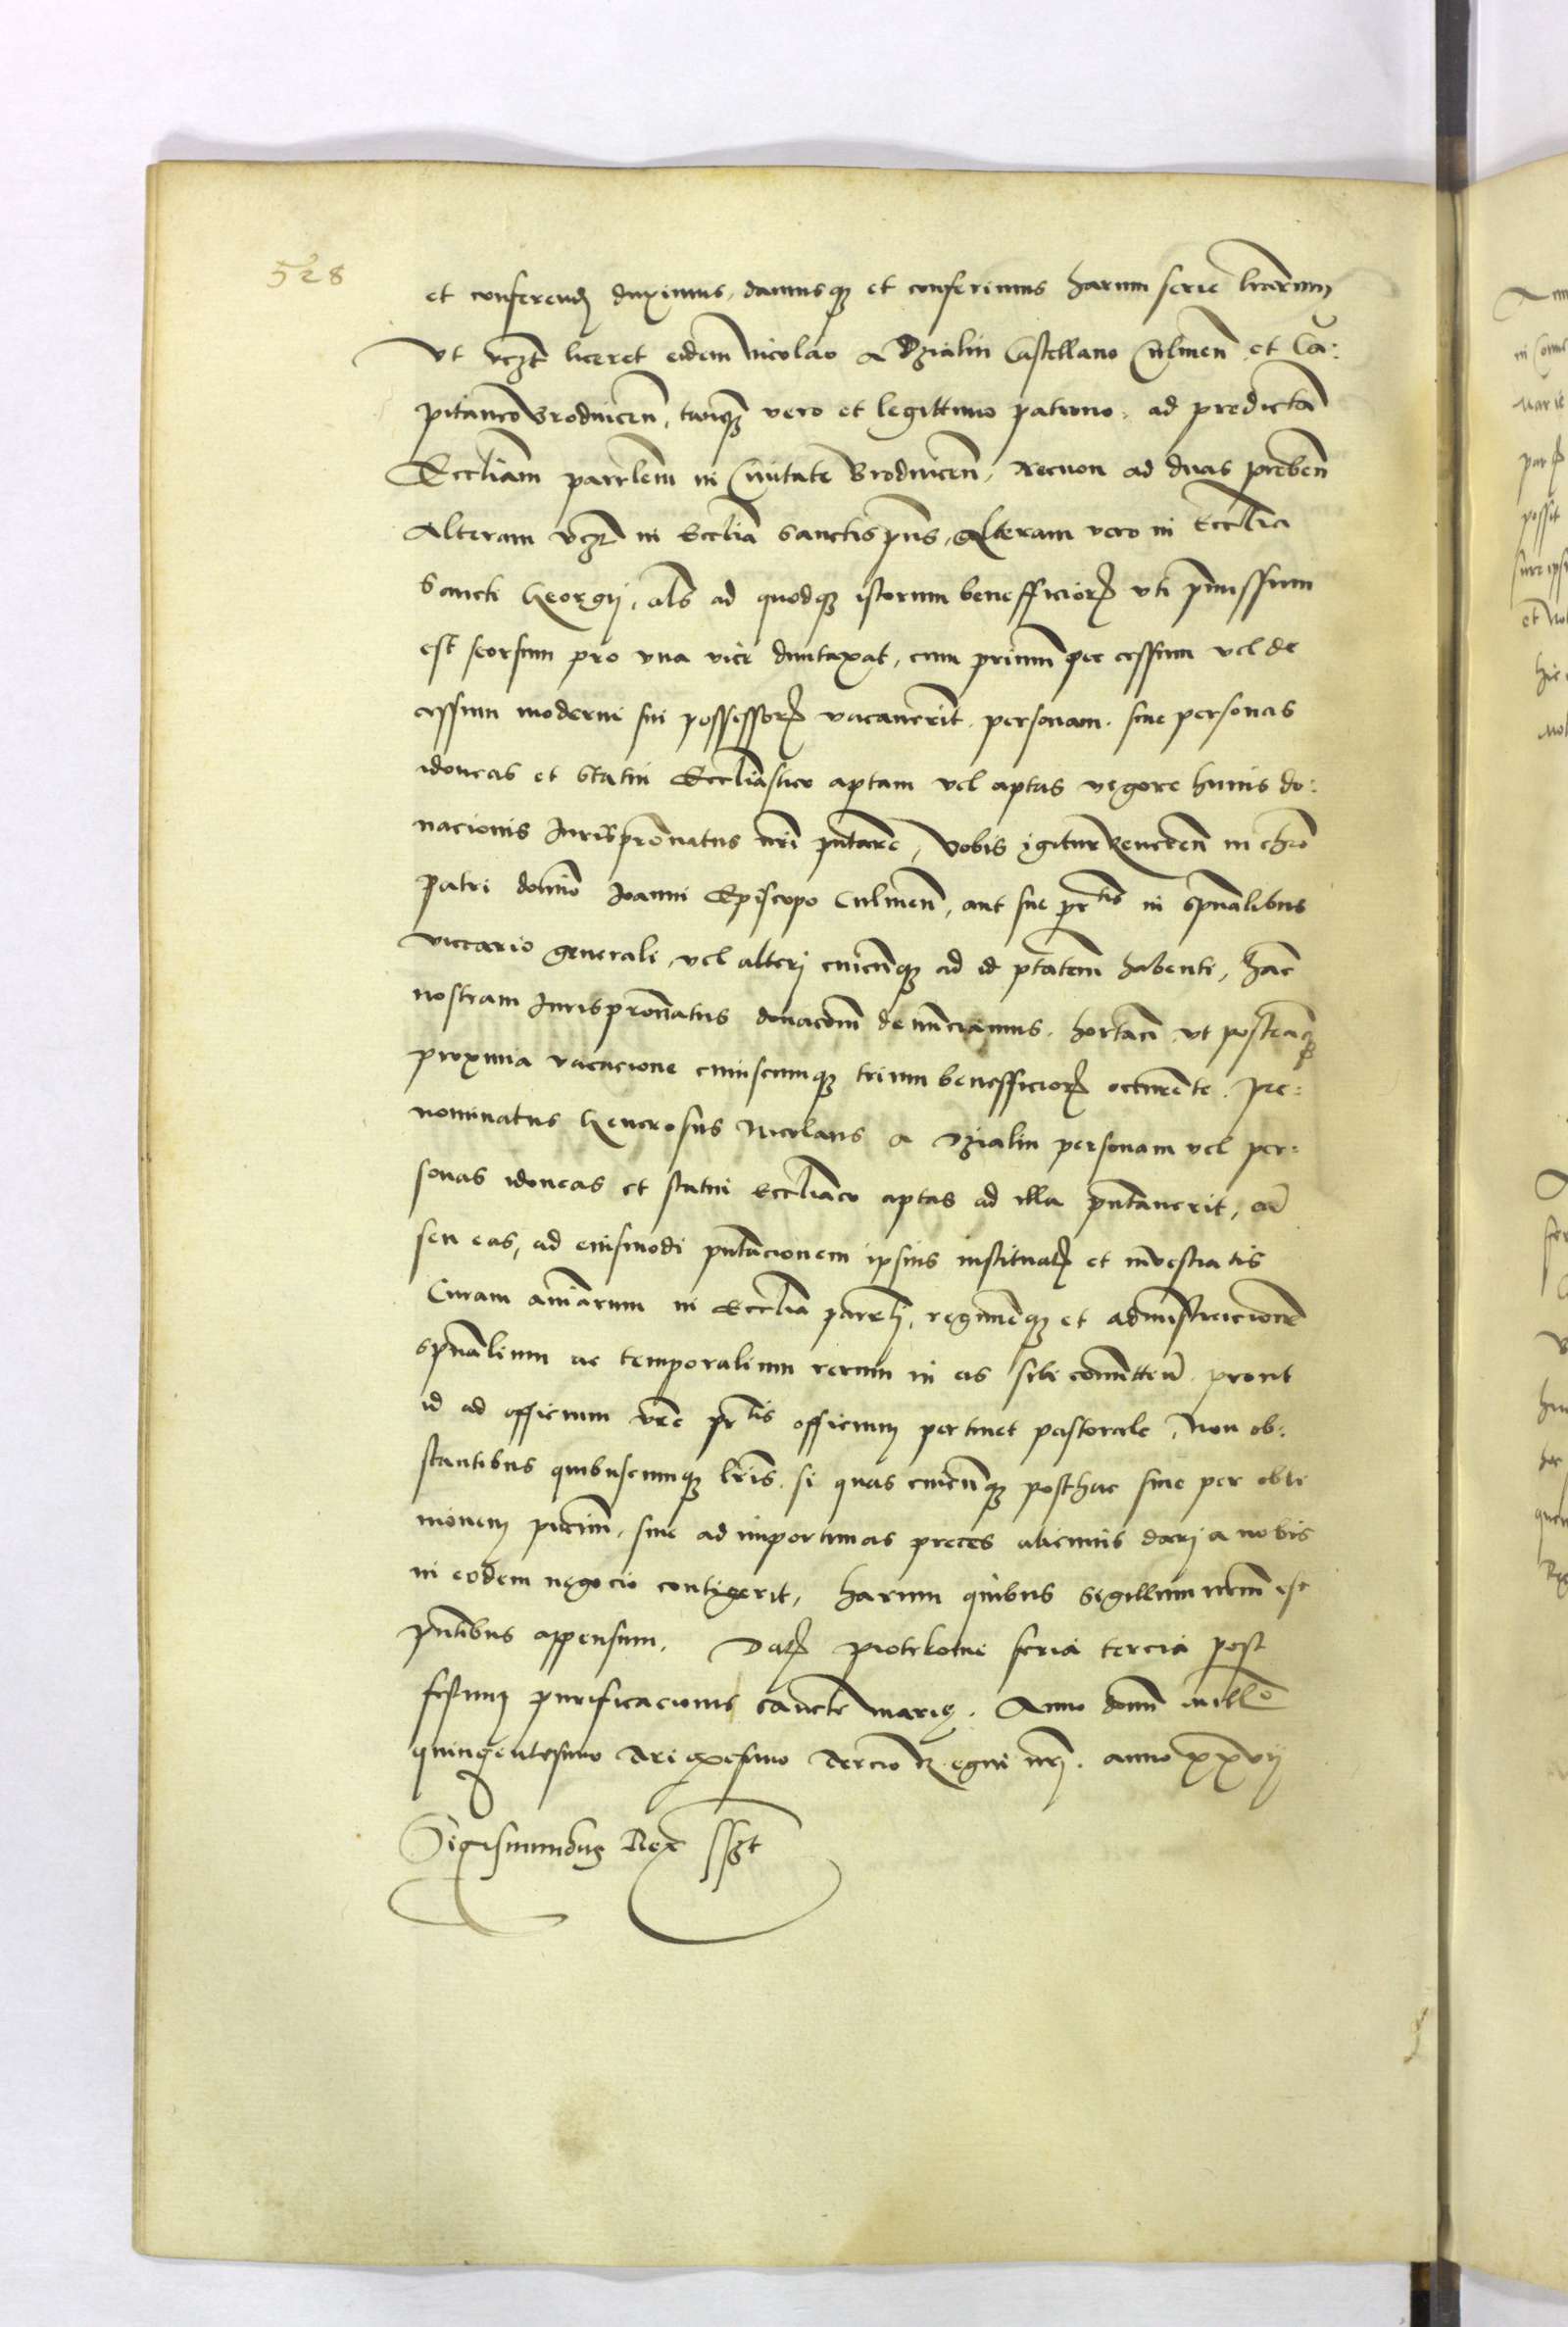 528
et conferend duximus, damusq et conferimus harum serie lrarum
Vt vczt liceret eidem Nicolao a Dzialin Castellano Culmen et Ca:
pitaneo Brodnicen, tanq vero et legittimo patrono, ad predicta
Eccliam parrlem in Ciuitate Brodnicen, Necnon ad duas preben
Alteram vczt in Ecclia Sanctispus, Alteram vero in Ecclia
Sancti Georgij, als ad quodq istorum benefficior vti pmissum
est seorsum pro vna vice duntaxat, cum primum per cessum vel de
cessum moderni sui possessor vacauerit, personam siue personas
idoneas et statui Eccliastico aptam vel aptas vigore huius do:
nacionis Jurispronatus nri pntare, Vobis igitur Reueren in chro
patri domino Joanni Episcopo Culmen, aut sue prtis in spualibus
viccario generali, vel alteri cuicunq ad id ptatem habenti, hac
nostram Jurispronatus donacom denunciamus, hortan vt posteaq
proxima vacacione cuiuscumq trium benefficior occurente, pre:
nominatus Generosus Nicolaus a Dzialin personam vel per:
sonas idoneas et statui eccliaco aptas ad illa pntauerit, ea
seu eas, ad eiusmodi pntacionem ipsius instituat et inuestiatis
Curam aniarum in Ecclia parrli, regimeq et administracione
spualium ac temporalium rerum in eis sibi committen, prout
id ad officium vre prtis officium pertinet pastorale, Non ob:
stantibus quibuscumq lris, si quas cuicunq posthac siue per obli
uionem siue ad importunas preces alicuius dari a nobis
in eodem negocio contigerit, harum quibus Sigillum nrm est
pntibus appensum. Dat Piotrkouie feria tercia post
festum purificacionis Sancte Marie. Anno domi mille
quingentesimo Trigesimo Tercio Regni nri. anno xxvij
Sigismundus Rex sszt